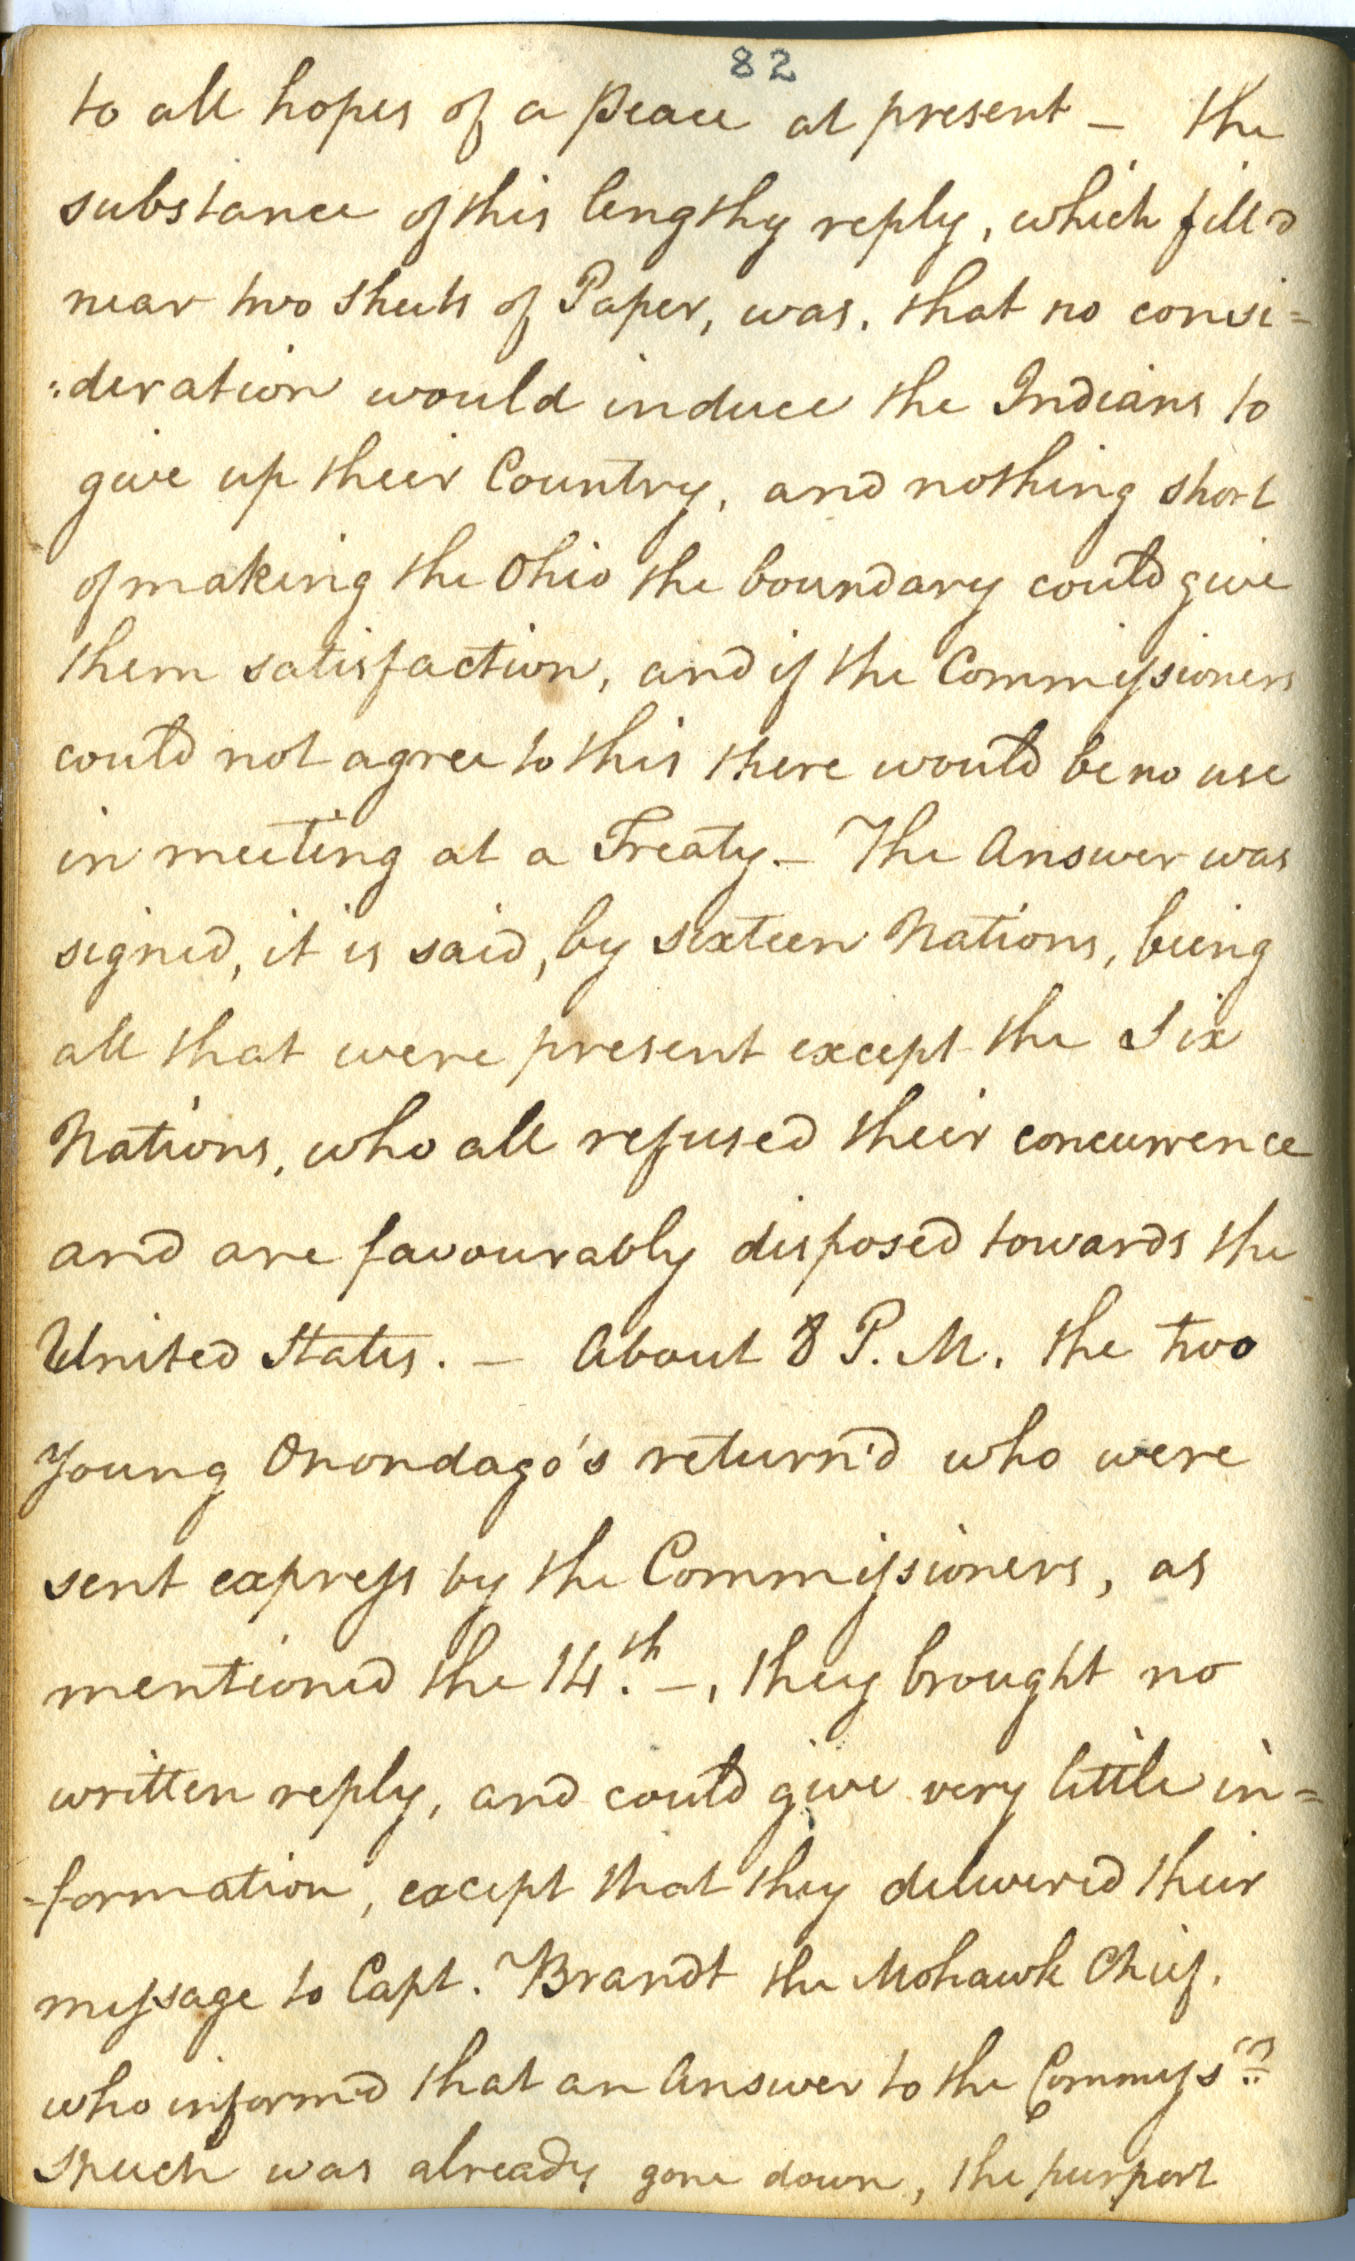 82
to all hopes of a Peace at present – the
substance of this lengthy reply, which fill'd
near two sheets of Paper, was, that no consi=
:deration would induce the Indians to
give up their Country, and nothing short
of making the Ohio the boundary could give
them satisfaction, and if the Commissioners
could not agree to this there would be no use
in meeting at a Treaty – The Answer was
signed, it is said, by sixteen Nations, being
all that were present except the Six
Nations, who all refused their concurrence
and are favourably disposed towards the
United States. – About 8 P. M. the two
Young Onondago's return'd who were
sent express by the Commissioners, as
mentioned the 14.th –, they brought no
written reply, and could give very little in=
-formation, except that they delivered their
message to Capt. Brandt the Mohawk Chief,
who inform'd that an Answer to the Commissrs
Speech was already gone down, the purport